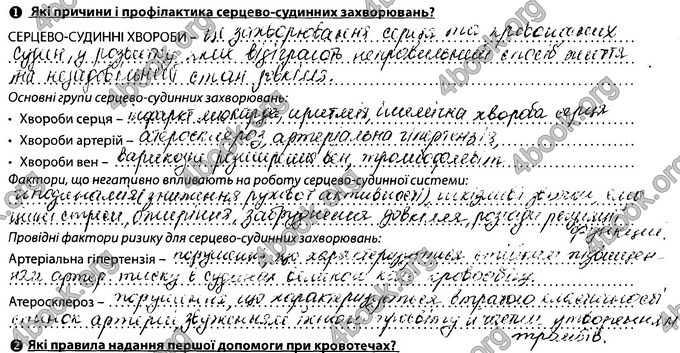 ❶ Які причини і профілактика серцево-судинних захворювань?
СЕРЦЕВО-СУДИННІ ХВОРОБИ – це захворювання серця та кровоносних
судин, у розвитку яких відіграють неправильний спосіб життя
та незадовільний стан довкілля.
Основні групи серцево-судинних захворювань
• Хвороби серця – інфаркт міокарда, аритмія, ішемічна хвороба серця
• Хвороби артерій – атеросклероз, артеріальна гіпертензія,
• Хвороби вен – варикозні розширення вен, тромбофлебіт
Фактори, що негативно впливають на роботу серцево-судинної системи:
гіподинамія (зниження рухової активності), шкідливі звички, емо
ційні стреси, ожиріння, забруднення довкілля, розлади регуляції
функцій.
Провідні фактори ризику для серцево-судинних захворювань:
Артеріальна гіпертензія – порушення, що характеризується стійким підвищен-
ням артер. тиску в судинах великого кола кровообігу
Атеросклероз – порушення, що характеризується втратою еластичності
стінок артерій звуженням їхнього просвіту й частим утворенням
тромбів.
❷ Які правила надання першої допомоги при кровотечах?
4book.org